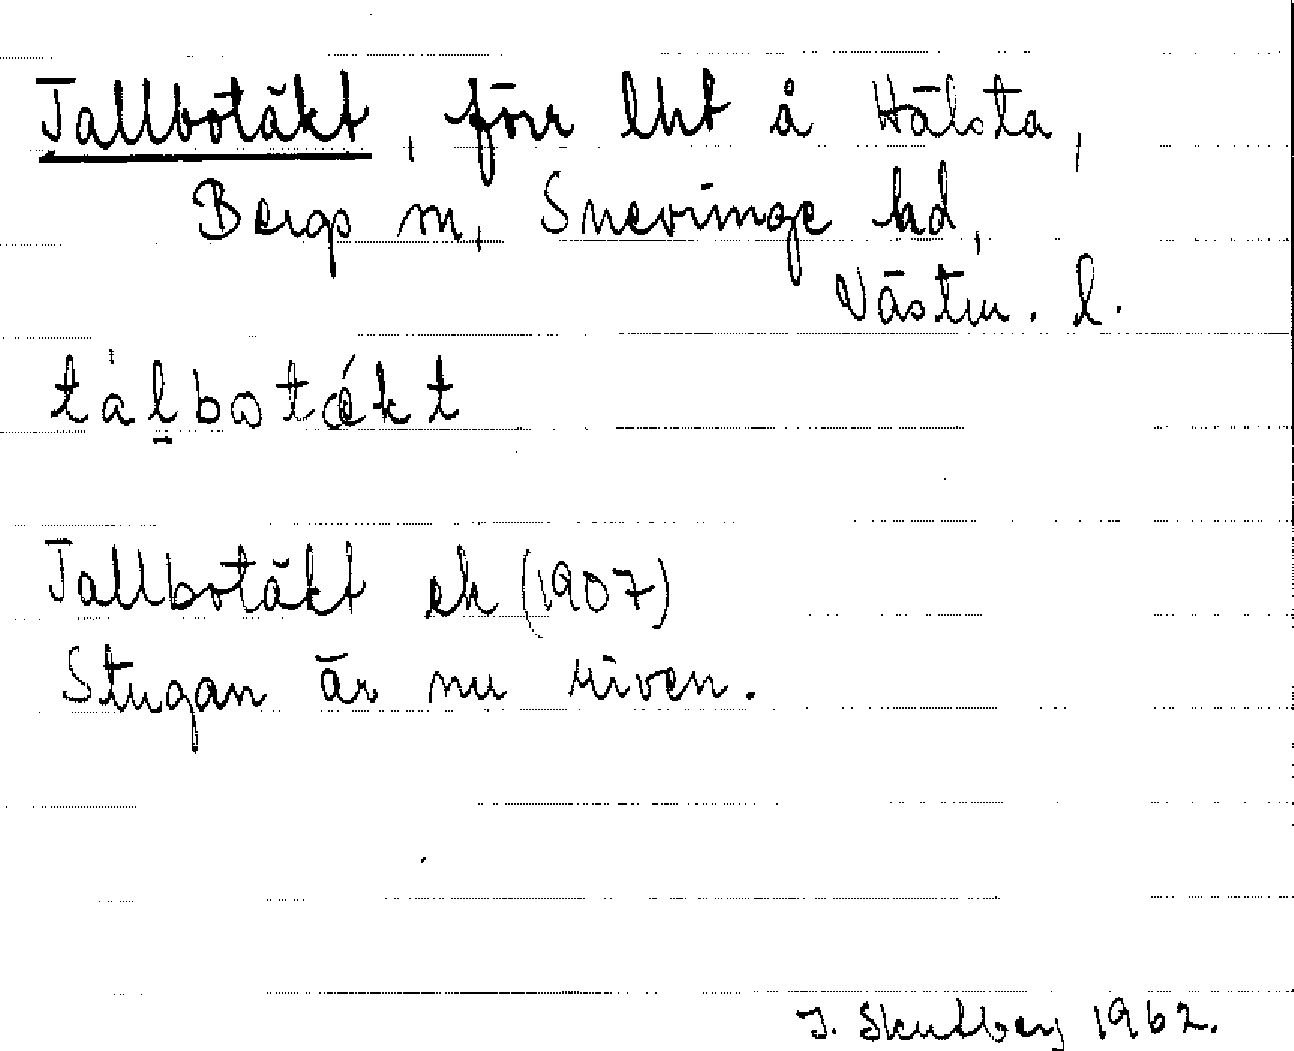 Tallbotäkt, förr lht å Hälsta,
Bergs sn, Snevringe hd,
Västm. l.
tálbotǽkt
Tallbotäkt ek (1907)
Stugan är nu riven.
J. Skutberg 1962.